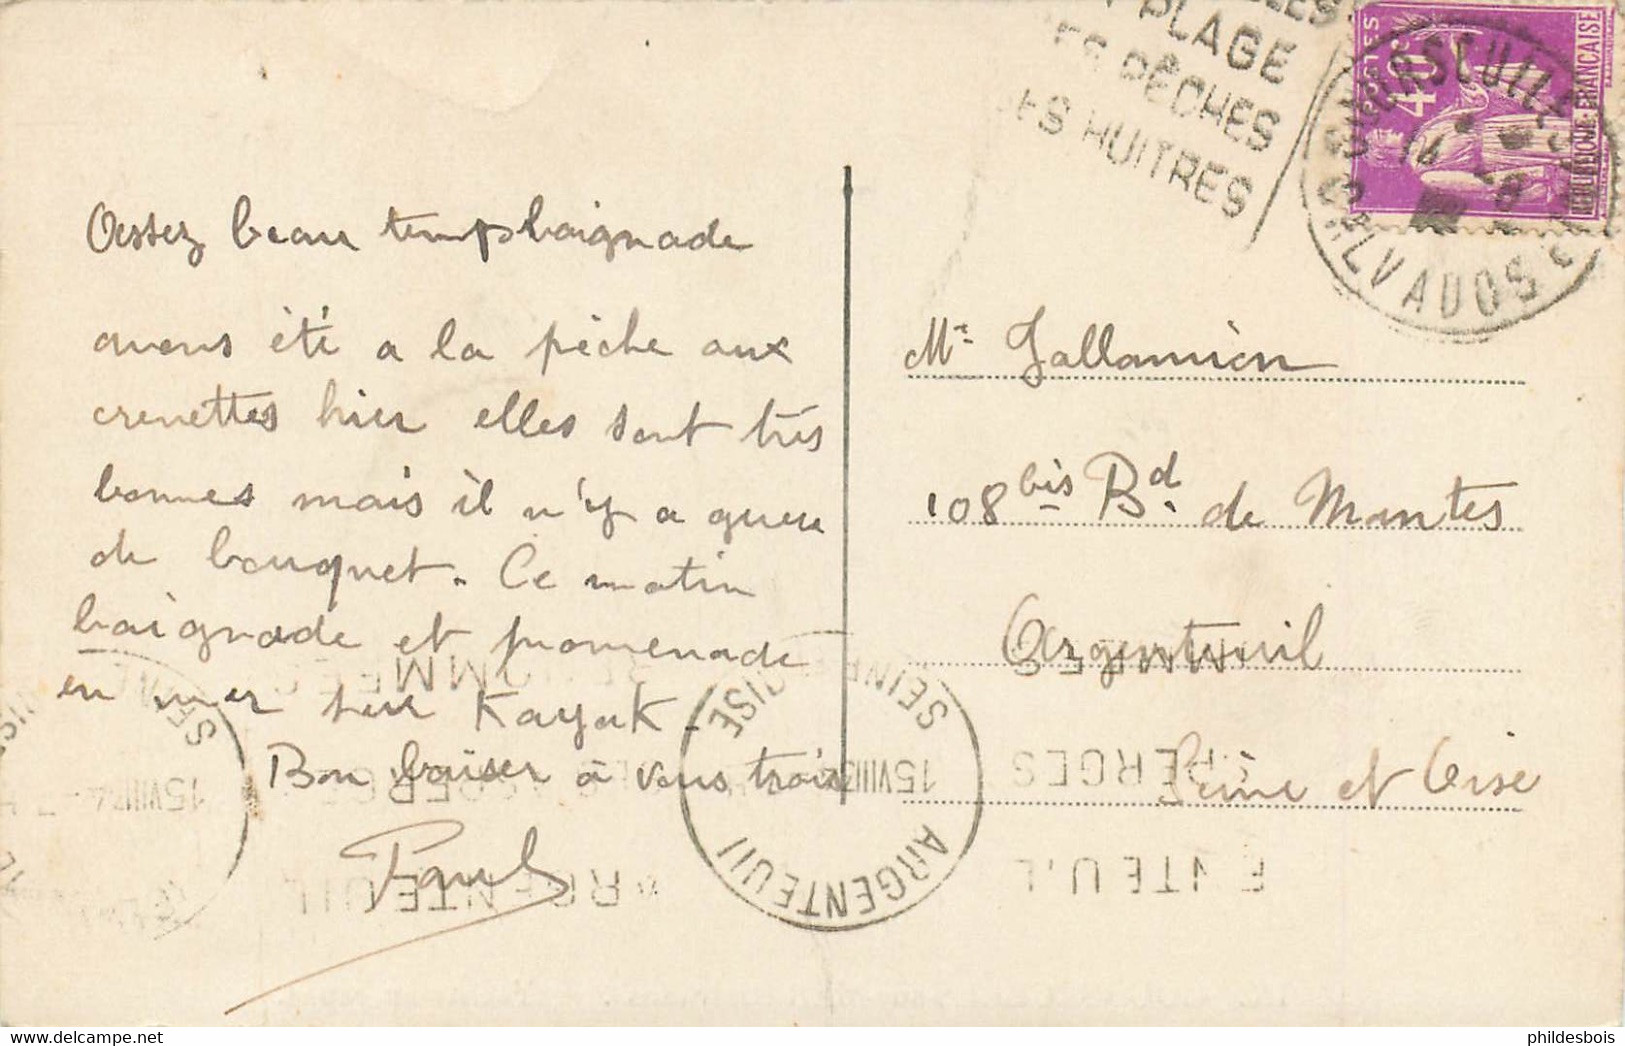 Assez beau temps baignade
avons été a la pêche aux
crevettes hier elles sont très
bonnes mais il n'y a guere
de bouquet. Ce matin
baignade et promenade
en mer sur Kayak.
Bon baiser à vous trois
Paul
PLAGE
ES PÊCHES
ES HUITRES
POSTES
40c
REPUBLIQUE FRANCAISE
COURSEULLES S MER
CALVADOS
Mr Jallamion
108 bis Bd. de Mantes
Argenteuil
Seine et Oise
RENOMMEE
ASPERGES
ARGENTEUIL
SEINE ET OISE
15 VIII
ARGENTEUIL
phildesbois